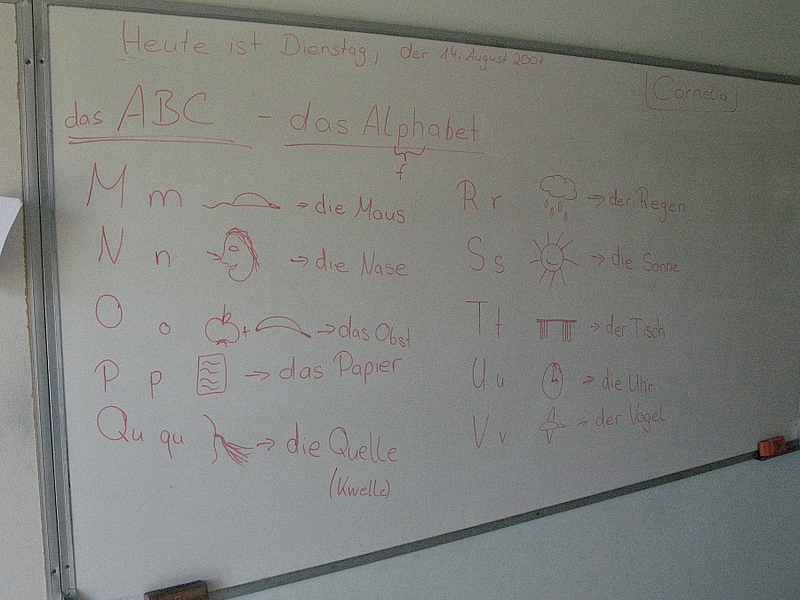 Heute ist Dienstag, der 14. August 2001
Cornelia
das ABC - das Alphabet
f
M m → die Maus
N n → die Nase
O o + → das Obst
P p → das Papier
Qu qu → die Quelle
(Kwelle)
R r → der Regen
S s → die Sonne
T t → der Tisch
U u → die Uhr
V v → der Vogel